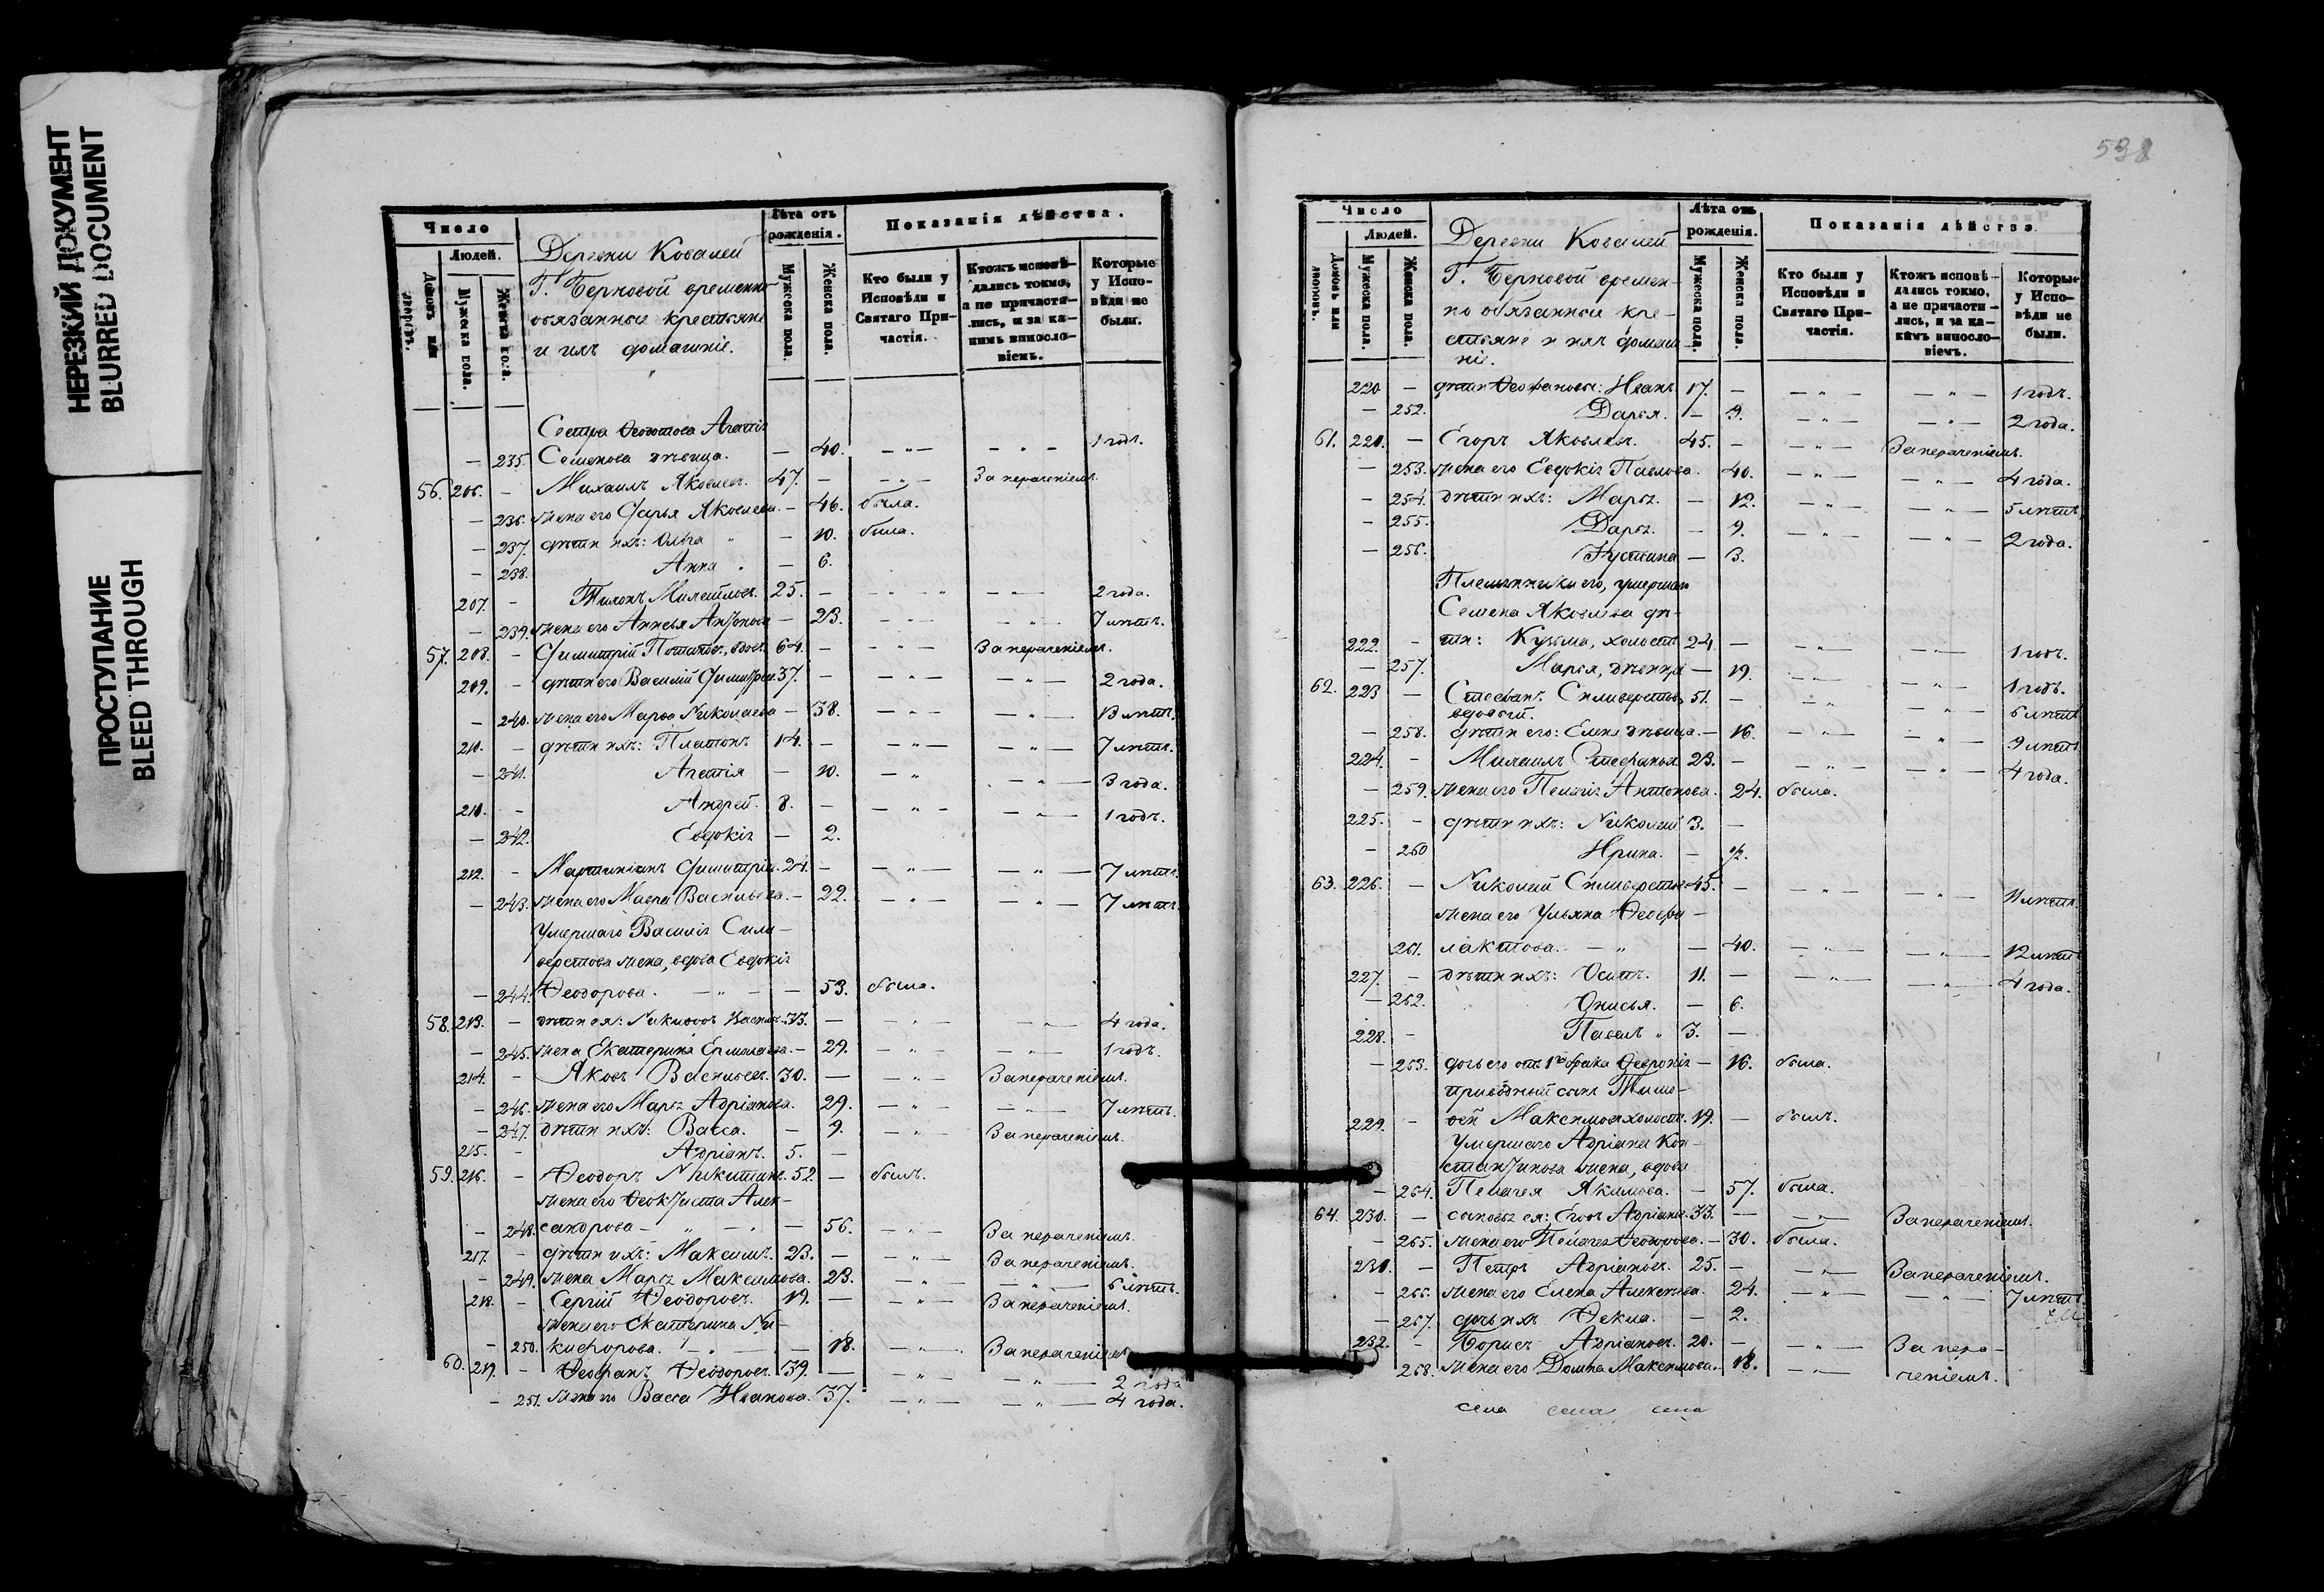 НЕРЕЗКИЙ ДОКУМЕНТ
BLURRED DOCUMENT
ПРОСТУПАНИЕ
BLEED THROUGH
Число
Людей.
Домовъ или дворовъ.
Мужеска пола.
Женска пола.
Деревни Ковалей
Г. Берновой временно
обязанные крестьяне
и ихъ домашніе.
Лѣта отъ рожденія.
Мужеска пола.
Женска пола.
Показанія дѣйства.
Кто были у Исповѣди и Святаго Причастія.
Ктожъ исповѣдались токмо, а не причастились, и за какимъ винословіемъ.
Которые у Исповѣди не были.
Сестра Ѳеодотова Агафія
— 235. Семенова дѣвица. — 40. — „ — — „ — 1 годъ.
56. 206. — Михаилъ Яковлевъ. 47. — — „ — За нераченіемъ.
— 236. жена его Дарья Яковлева. — 46. была.
— 237. дѣти ихъ: Ольга „ — 10. была.
— 238. Анна „ — 6.
207. — Тихонъ Михайловъ. 25. — — „ — — „ — 2 года.
— 239. жена его Аннсья Антонова — 23. — „ — — „ — 7 лѣтъ.
57. 208. — Димитрій Потаповъ, вдовъ. 64. — — „ — За нераченіемъ.
209. — дѣти его Василій Димитріев. 37. — — „ — — „ — 2 года.
— 240. жена его Марѳа Николаева — 38. — „ — — „ — 13 лѣтъ.
210. — дѣти ихъ: Платонъ 14. — — „ — — „ — 7 лѣтъ.
— 241. Агафія — 10. — „ — „ — 3 года.
211. — Андрей. 8. — — „ — — „ — 1 годъ.
— 242. Евдокія — 2.
212. — Мартиніанъ Димитріев. 24. — — „ — — „ — 7 лѣтъ.
— 243. жена его Мавра Васильева. — 22. — „ — — „ — 7 лѣтъ.
Умершаго Василія Сили-
верстова жена, вдова Евдокія
— 244. Ѳеодорова. — „ — — 53. была.
58. 213. — дѣти ея: Никифоръ Васильев. 33. — — „ — — „ — 4 года.
— 245. жена Екатерина Ермолаева. — 29. — „ — „ — 1 годъ.
214. — Яковъ Васильевъ. 30. — — „ — За нераченіемъ.
— 246. жена его Марѳа Адріанова. 29. — „ — — „ — 7 лѣтъ.
— 247. дѣти ихъ: Васса. — 9. — „ — За нераченіемъ.
215. — Адріанъ. 5. —
59. 216. — Ѳеодоръ Никитинъ. 52 — былъ.
жена его Ѳеоктиста Алек-
— 248. сандрова — „ — — 56. — „ — За нераченіемъ.
217. — дѣти ихъ: Максимъ. 23. — — „ — За нераченіемъ.
— 249. жена Марѳа Максимова. 23. — „ — — „ — 6 лѣтъ.
218. — Сергій Ѳеодоровъ. 19. — — „ — За нераченіемъ.
жена его Екатерина Ни-
— 250. кифорова. — „ — — 18. — „ — За нераченіемъ.
60. 219. — Ѳеофанъ Ѳеодоровъ. 39. — — „ — — „ — 2 года
— 251. жена его Васса Иванова. 37. — „ — — „ — 4 года.
538
Число
Людей.
Домовъ или дворовъ.
Мужеска пола.
Женска пола.
Деревни Ковалей
Г. Берновой времен-
но обязанные кре-
стьяне и ихъ домаш-
ніе.
Лѣта отъ рожденія.
Мужеска пола.
Женска пола.
Показанія дѣйства.
Кто были у Исповѣди и Святаго Причастія.
Ктожъ исповѣдались токмо, а не причастились, и за какимъ винословіемъ.
Которые у Исповѣди не были.
220 — дѣти Ѳеофановы: Иванъ 17. — — „ — — „ — 1 годъ.
— 252. Дарья. — 9. — „ — — „ — 2 года.
61. 221. — Егоръ Яковлевъ. 45. — — „ — За нераченіемъ.
— 253. жена его Евдокія Павлова. 40. — „ — — „ — 4 года.
— 254. дѣти ихъ: Марѳа. — 12. — „ — — „ — 5 лѣтъ
— 255. Дарья. — 9. — „ — — „ — 2 года.
— 256. Іустина — 3.
Племянники его, умершаго
Семена Яковлева дѣ-
222. — ти: Кузьма, холостъ 24. — — „ — — „ — 1 годъ.
— 257. Марья, дѣвица — 19. — „ — — „ — 1 годъ.
62. 223 — Стефанъ Силиверстовъ 51. — — „ — „ — 6 лѣтъ
вдовый.
— 258. дѣти его: Елена дѣвица. — 16. — „ — — „ — 9 лѣтъ
224. — Михаилъ Стефановъ. 23. — — „ — — „ — 4 года.
— 259. жена его Пелагія Антонова. 24. была.
225. — дѣти ихъ: Николай 3. —
— 260 Ирина. — ½.
63. 226. — Николай Силиверстов 45. — — „ — — „ — 11 лѣтъ.
жена его Ульяна Ѳеофи-
261. лактова. — „ — 40. — „ — — „ — 12 лѣтъ
227. — дѣти ихъ: Осипъ. 11. — — „ — — „ — 4 года.
— 262. Онисья. — 6.
228. — Павелъ „ 3. —
— 263. дочь его отъ 1го брака Февронія — 16. была.
приводный сынъ Тимо-
229. — ѳей Максимовъ холостъ. 19. — былъ.
Умершаго Адріана Кон-
стантинова жена, вдова
— 264. Пелагея Якимова. — 57. была.
64. 230. — сыновья ея: Егоръ Адріановъ. 33. — — „ — За нераченіемъ.
— 265. жена его Пелагея Ѳеодорова. — 30. была.
231. — Петръ Адріановъ. 25. — — „ — За нераченіемъ.
— 266. жена его Елена Алексѣева. 24. — „ — — „ — 7 лѣтъ.
— 267. дочь ихъ Ѳекла. — 2.
232. — Борисъ Адріановъ. 20. — — „ — За нера-
268. жена его Домна Максимова. 18. — „ — ченіемъ.
села села села